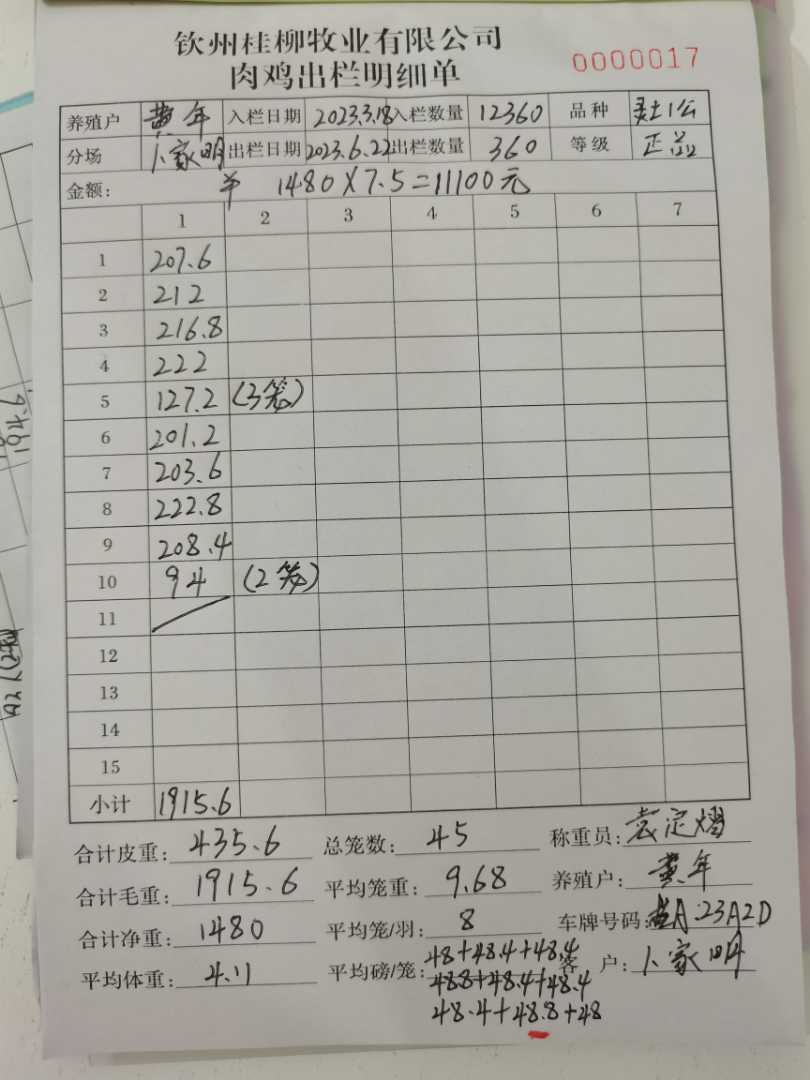 钦州桂柳牧业有限公司
肉鸡出栏明细单 0000017
养殖户 黄年 入栏日期 2023.3.18 入栏数量 12360 品种 土1公
分场 卜家明 出栏日期 2023.6.22 出栏数量 360 等级 正品
金额: ¥ 1480×7.5=11100元
1 2 3 4 5 6 7
1 207.6
2 212
3 216.8
4 222
5 127.2 (3笼)
6 201.2
7 203.6
8 222.8
9 208.4
10 94 (2笼)
11
12
13
14
15
小计 1915.6
合计皮重: 435.6 总笼数: 45 称重员: 袁定熠
合计毛重: 1915.6 平均笼重: 9.68 养殖户: 黄年
合计净重: 1480 平均笼/羽: 8 车牌号码: A·23A2D
平均体重: 4.11 平均磅/笼: 48+48.4+48.4 客户: 卜家明
48.8+48.4+48.4
48.4+48.8+48